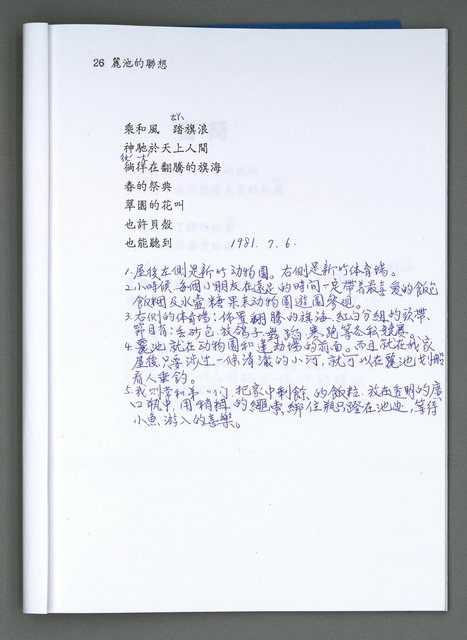 26 麗池的聯想
乘和風 踏旗浪
神馳於天上人間
徜徉在翻騰的旗海
春的祭典
翠園的花叫
也許貝殼
也能聽到 1981.7.6.
1.屋後左側是新竹动物園。右側是新竹体育場。
2.小時候每個小朋友在遠足的時間一定帶着最喜愛的飯包
飯糰及水壺糖果來动物園遊園參觀。
3.右側的体育場:佈置翻騰的旗海、紅白分組的彩帶
節目有:丟砂包 放鴿子 舞蹈 賽跑等各私競賽。
4.麗池就在动物園和運动場的前面。而且就在我家
屋後只要涉过一條清澈的小河,就可以在麗池划船
有人垂釣。
5.我則常和弟 们 把家中剩餘 的飯粒 放在透明的廣
口瓶中,用稍粗 的繩索綁住瓶口蹬在池边,等待
小魚游入的喜樂。